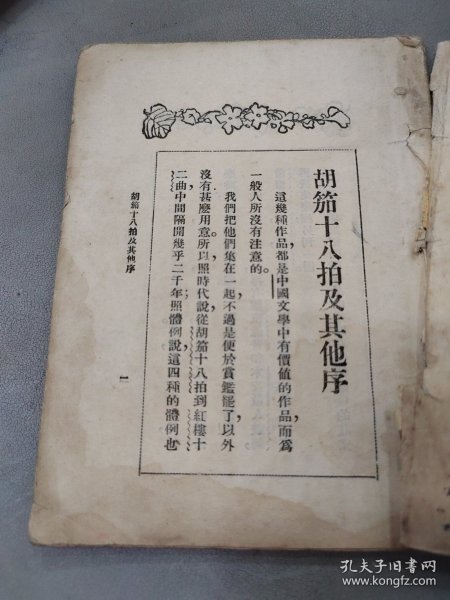 胡笳十八拍及其他序
這幾種作品，都是中國文學中有價值的作品，而爲
一般人所沒有注意的。
我們把他們集在一起，不過是便於賞鑑罷了，以外
沒有甚麼用意。所以照時代說，從胡笳十八拍到紅樓十
二曲中間隔開幾乎二千年，照體例說，這四種的體例也
胡笳十八拍及其他序
一
孔夫子旧书网
www.kongfz.com